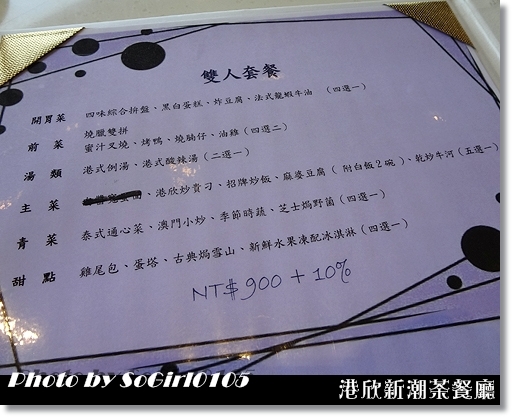 雙人套餐
開胃菜 四味綜合拚盤、黑白蛋糕、炸豆腐、法式龍蝦牛油 (四選一)
燒臘雙拼
前菜 蜜汁叉燒、烤鴨、燒腩仔、油雞(四選二)
湯類 港式例湯、港式酸辣湯(二選一)
主菜 、港欣炒貴刁、招牌炒飯、麻婆豆腐(附白飯2碗)、乾炒牛河(五選一)
青菜 泰式通心菜、澳門小炒、季節時蔬、芝士焗野菌(四選一)
甜點 雞尾包、蛋塔、古典焗雪山、新鮮水果凍配冰淇淋(四選一)
NT$900+10%
Photo by SoGirl0105
港欣新潮茶餐廳